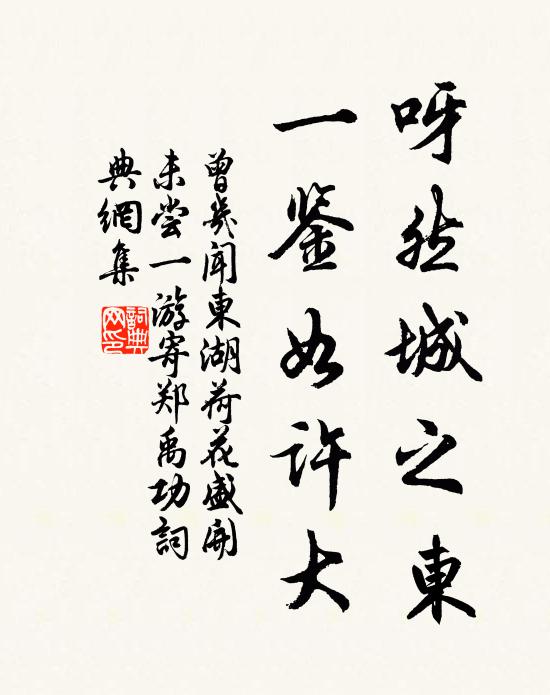 呀然城之東
一鉴如许大
曾幾聞東湖荷花盛開
未尝一游寄郑禹功詞
典網集
詞典
网印